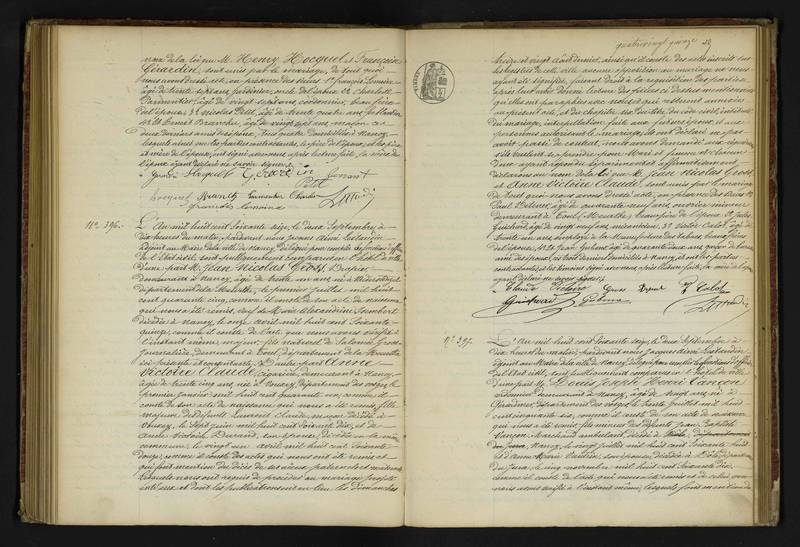 nom de la loi que M. Henry Hocquel et Françoise
Girardin, sont unis par le mariage, de tout quoi
nous avons dressé acte, en présence des sieurs 1° françois
âgé de trente sept ans, jardinier, oncle de l'époux 2° Charles
Parmentier, âgé de vingt sept ans, cordonnier, beau frère
de l'épouse, 3° Nicolas Petit, âgé de trente quatre ans
et 4° Ernest Branche, âgé de vingt sept ans, maçon, ces
deux derniers amis des époux, tous quatre domiciliés à Nancy,
lesquels ainsi que les parties contractantes, le père de l'époux, et le père
et mère de l'épouse, ont signé avec nous après lecture faite, la mère de
l'époux ayant déclaré ne savoir signer.
Girardin
Petit
Hocquel
N° 396.
L'An mil huit cent soixante seize, le deux Septembre, à
dix heures du matin, pardevant nous Jacques
adjoint au Maire de la ville de Nancy, délégué pour remplir les fonctions d'officier
de l'état civil, sont publiquement comparus en l'hôtel de ville
D'une part M. Jean Nicolas Gross, Drapier
demeurant à Nancy, âgé de trente six ans, né à
département de la Moselle, le premier juillet mil huit
cent quarante, comme il conste de son acte de naissance
qui nous a été remis, veuf de Marie Alexandrine Lambert
décédée à Nancy, le onze avril mil huit cent soixante
quinze, comme il conste de l'acte que nous avons vérifié à
l'instant même, majeur, fils naturel de Salomé Gross
journalière, demeurant à Toul, département de la Meurthe
D'autre part Anne
Victoire Claude, cigarière, demeurant à Nancy,
âgée de trente cinq ans, née à Vouxey, département des Vosges, le
premier janvier mil huit cent quarante un, comme il
conste de son acte de naissance qui nous a été remis, fille
majeure de défunts Laurent Claude, décédé à
Vouxey, le sept juin mil huit cent soixante dix, et de
Anne Victoire Durand, son épouse, décédée en la même
commune, le vingt six avril mil huit cent soixante
douze, comme il conste des actes qui nous ont été remis et
qui font mention du décès de ses aïeux paternels et maternels
Lesquels nous ont requis de procéder au mariage projeté
entre eux et dont les publications ont eu lieu les Dimanches
quatre vingt quinze
treize et vingt août derniers, ainsi qu'il conste des actes inscrits sur
les registres de cette ville aucune opposition au mariage ne nous
ayant été signifiée, faisant droit à la réquisition des parties
après leur avoir donné lecture des pièces ci dessus mentionnées
qu'elles ont paraphées avec nous et qui resteront annexées
au présent acte, et du chapitre six, du titre du code civil, intitulé
du mariage, interpellation faite aux futurs époux, et aux
personnes autorisant le mariage, ils ont déclaré ne pas
avoir passé de contrat, nous avons demandé aux époux
s'ils veulent se prendre pour Mari et femme, et chacun
d'eux ayant répondu séparément et affirmativement,
déclarons au nom de la loi que M. Jean Nicolas Gross,
et Anne Victoire Claude, sont unis par le mariage
de tout quoi nous avons dressé acte, en présence des sieurs 1°
Paul âgé de quarante neuf ans, ouvrier mineur
demeurant à Toul, Meurthe, beau père de l'époux 2° Jules
Guichard, âgé de vingt neuf ans, mécanicien, 3° Victor Calot, âgé de
trente un ans, comptable à la Manufacture des tabacs, beau frère
de l'épouse, 4° Jean âgé de quarante deux ans,
ami des époux, ces trois derniers domiciliés à Nancy, et ont les parties
contractantes et les témoins signé avec nous après lecture faite, la mère de l'époux
ayant déclaré ne savoir signer.
Claude Victoire Gross V Calot
Guichard
N° 397.
L'An mil huit cent soixante seize, le deux Septembre à
dix heures du matin, pardevant nous Jacques
adjoint au Maire de la ville de Nancy, délégué pour remplir les fonctions d'officier
de l'état civil, sont publiquement comparus en l'hôtel de ville
D'une part M. Louis Joseph Henri Vançon
demeurant à Nancy, âgé de vingt ans, né à
Gérardmer, département des Vosges, le trente juillet mil huit
cent cinquante six, comme il conste de son acte de naissance
qui nous a été remis, fils mineur des défunts Jean Baptiste
Vançon, Marchand ambulant, décédé à
Nancy, le vingt juillet mil huit cent soixante huit
et d'Anne Marie son épouse, décédée à Dôle, département
du Jura, le cinq novembre mil huit cent soixante dix,
comme il conste de l'acte qui nous a été remis et de celui que
nous avons vérifié à l'instant même, lesquels font mention du